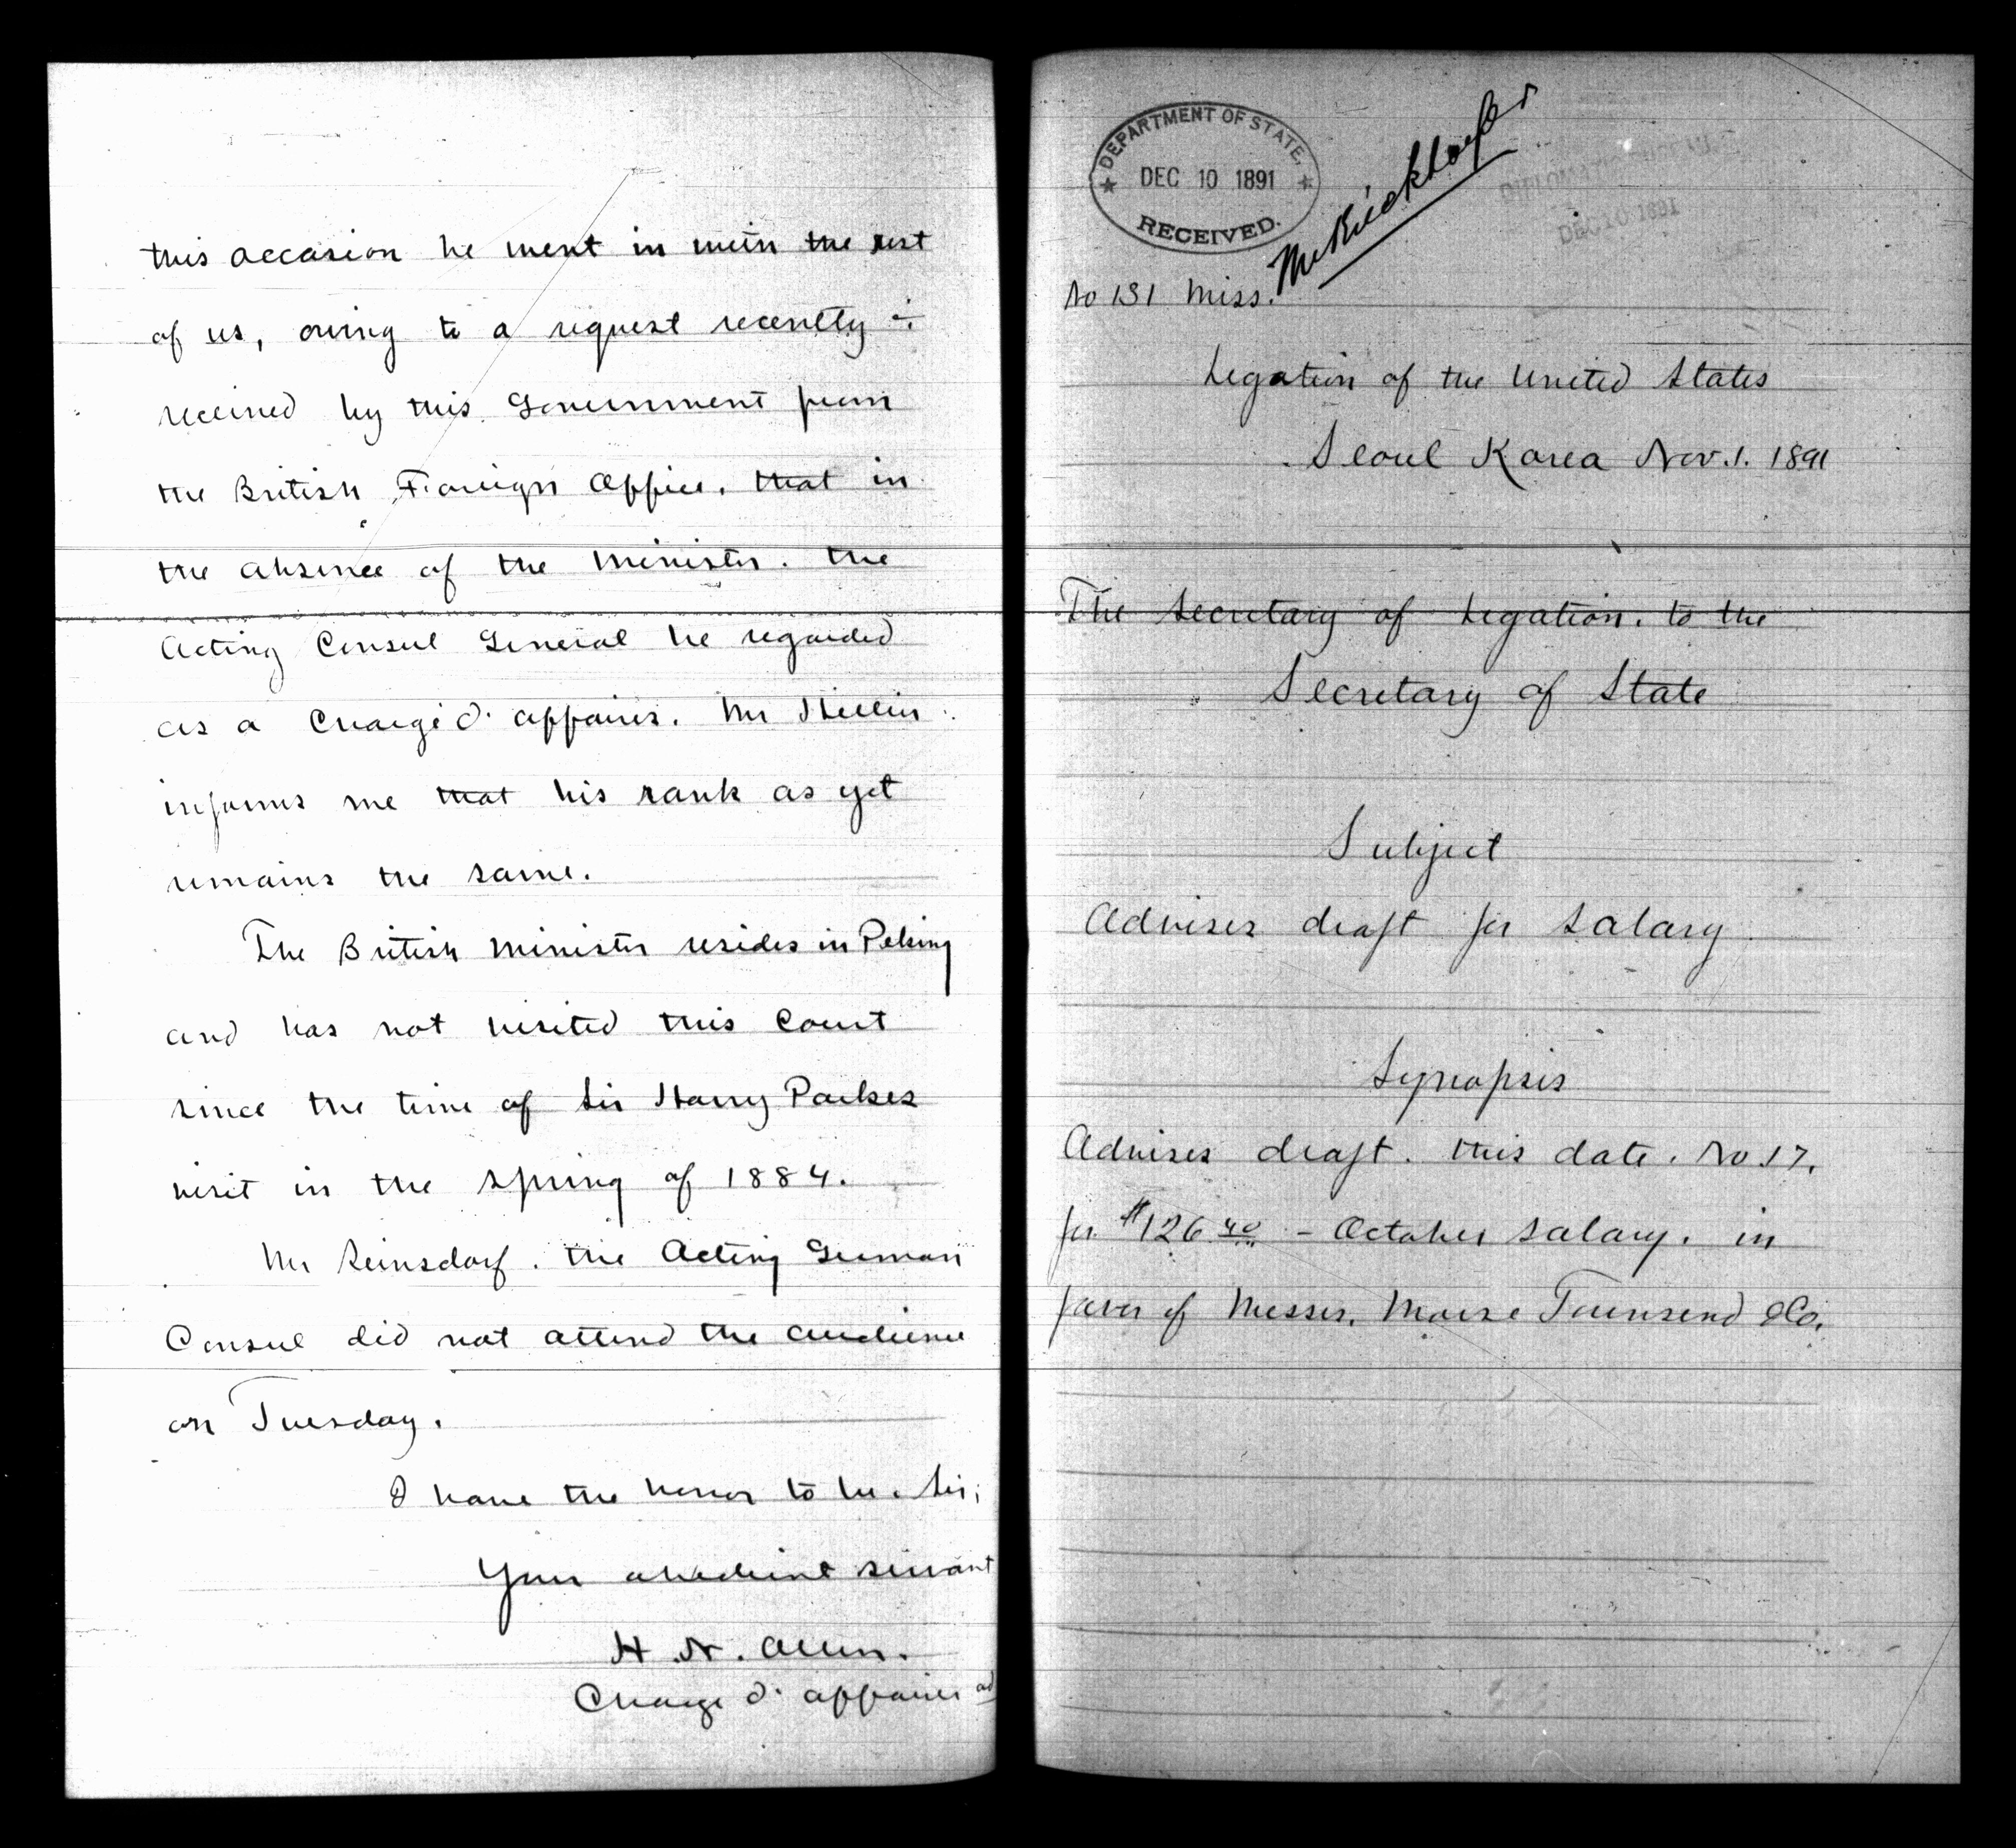 this occasion he went in with the rest
of us, owing to a request recently
received by this Government from
the British Foreign Office, that in
the absence of the Minister, the
Acting Consul General be regarded
as a Chargé d' affaires. Mr Hillier
informs me that his rank as yet
remains the same.
The British Minister resides in Peking
and has not visited this Court
since the time of Sir Harry Parkes
visit in the spring of 1884.
Mr Reinsdorf, the Acting German
Consul did not attend the audience
on Tuesday.
I have the honor to be, Sir;
Your obedient servant
H. N. Allen.
Charge d' affaires ad
DEPARTMENT OF STATE,
DEC 10 1891
RECEIVED.
DEC 10 1891
No 131 Miss.
Legation of the United States
Seoul Korea Nov. 1. 1891
The Secretary of Legation, to the
Secretary of State
Subject
Advises draft for salary
Synopsis
Advises draft, this date, No 17,
for $126 40 - October salary, in
favor of Messrs. Morse Townsend & Co.